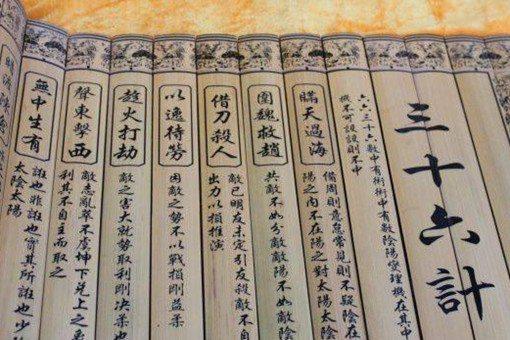 三十六計
六六三十六數中有術術中有數陰陽燮理機在其中
機不可設設則不中
瞞天過海
備周則意怠常見則不疑陰在
陽之內不在陽之對太陽太陰
圍魏救趙
共敵不如分敵敵陽不如敵陰
借刀殺人
敵已明友未定引友殺敵不自
出力以損推演
以逸待勞
困敵之勢不以戰損剛益柔
趁火打劫
敵之害大就勢取利剛決柔也
聲東擊西
敵志亂萃不虞坤下兌上之象
利其不自主而取之
無中生有
誑也非誑也實其所誑也少陰
太陰太陽